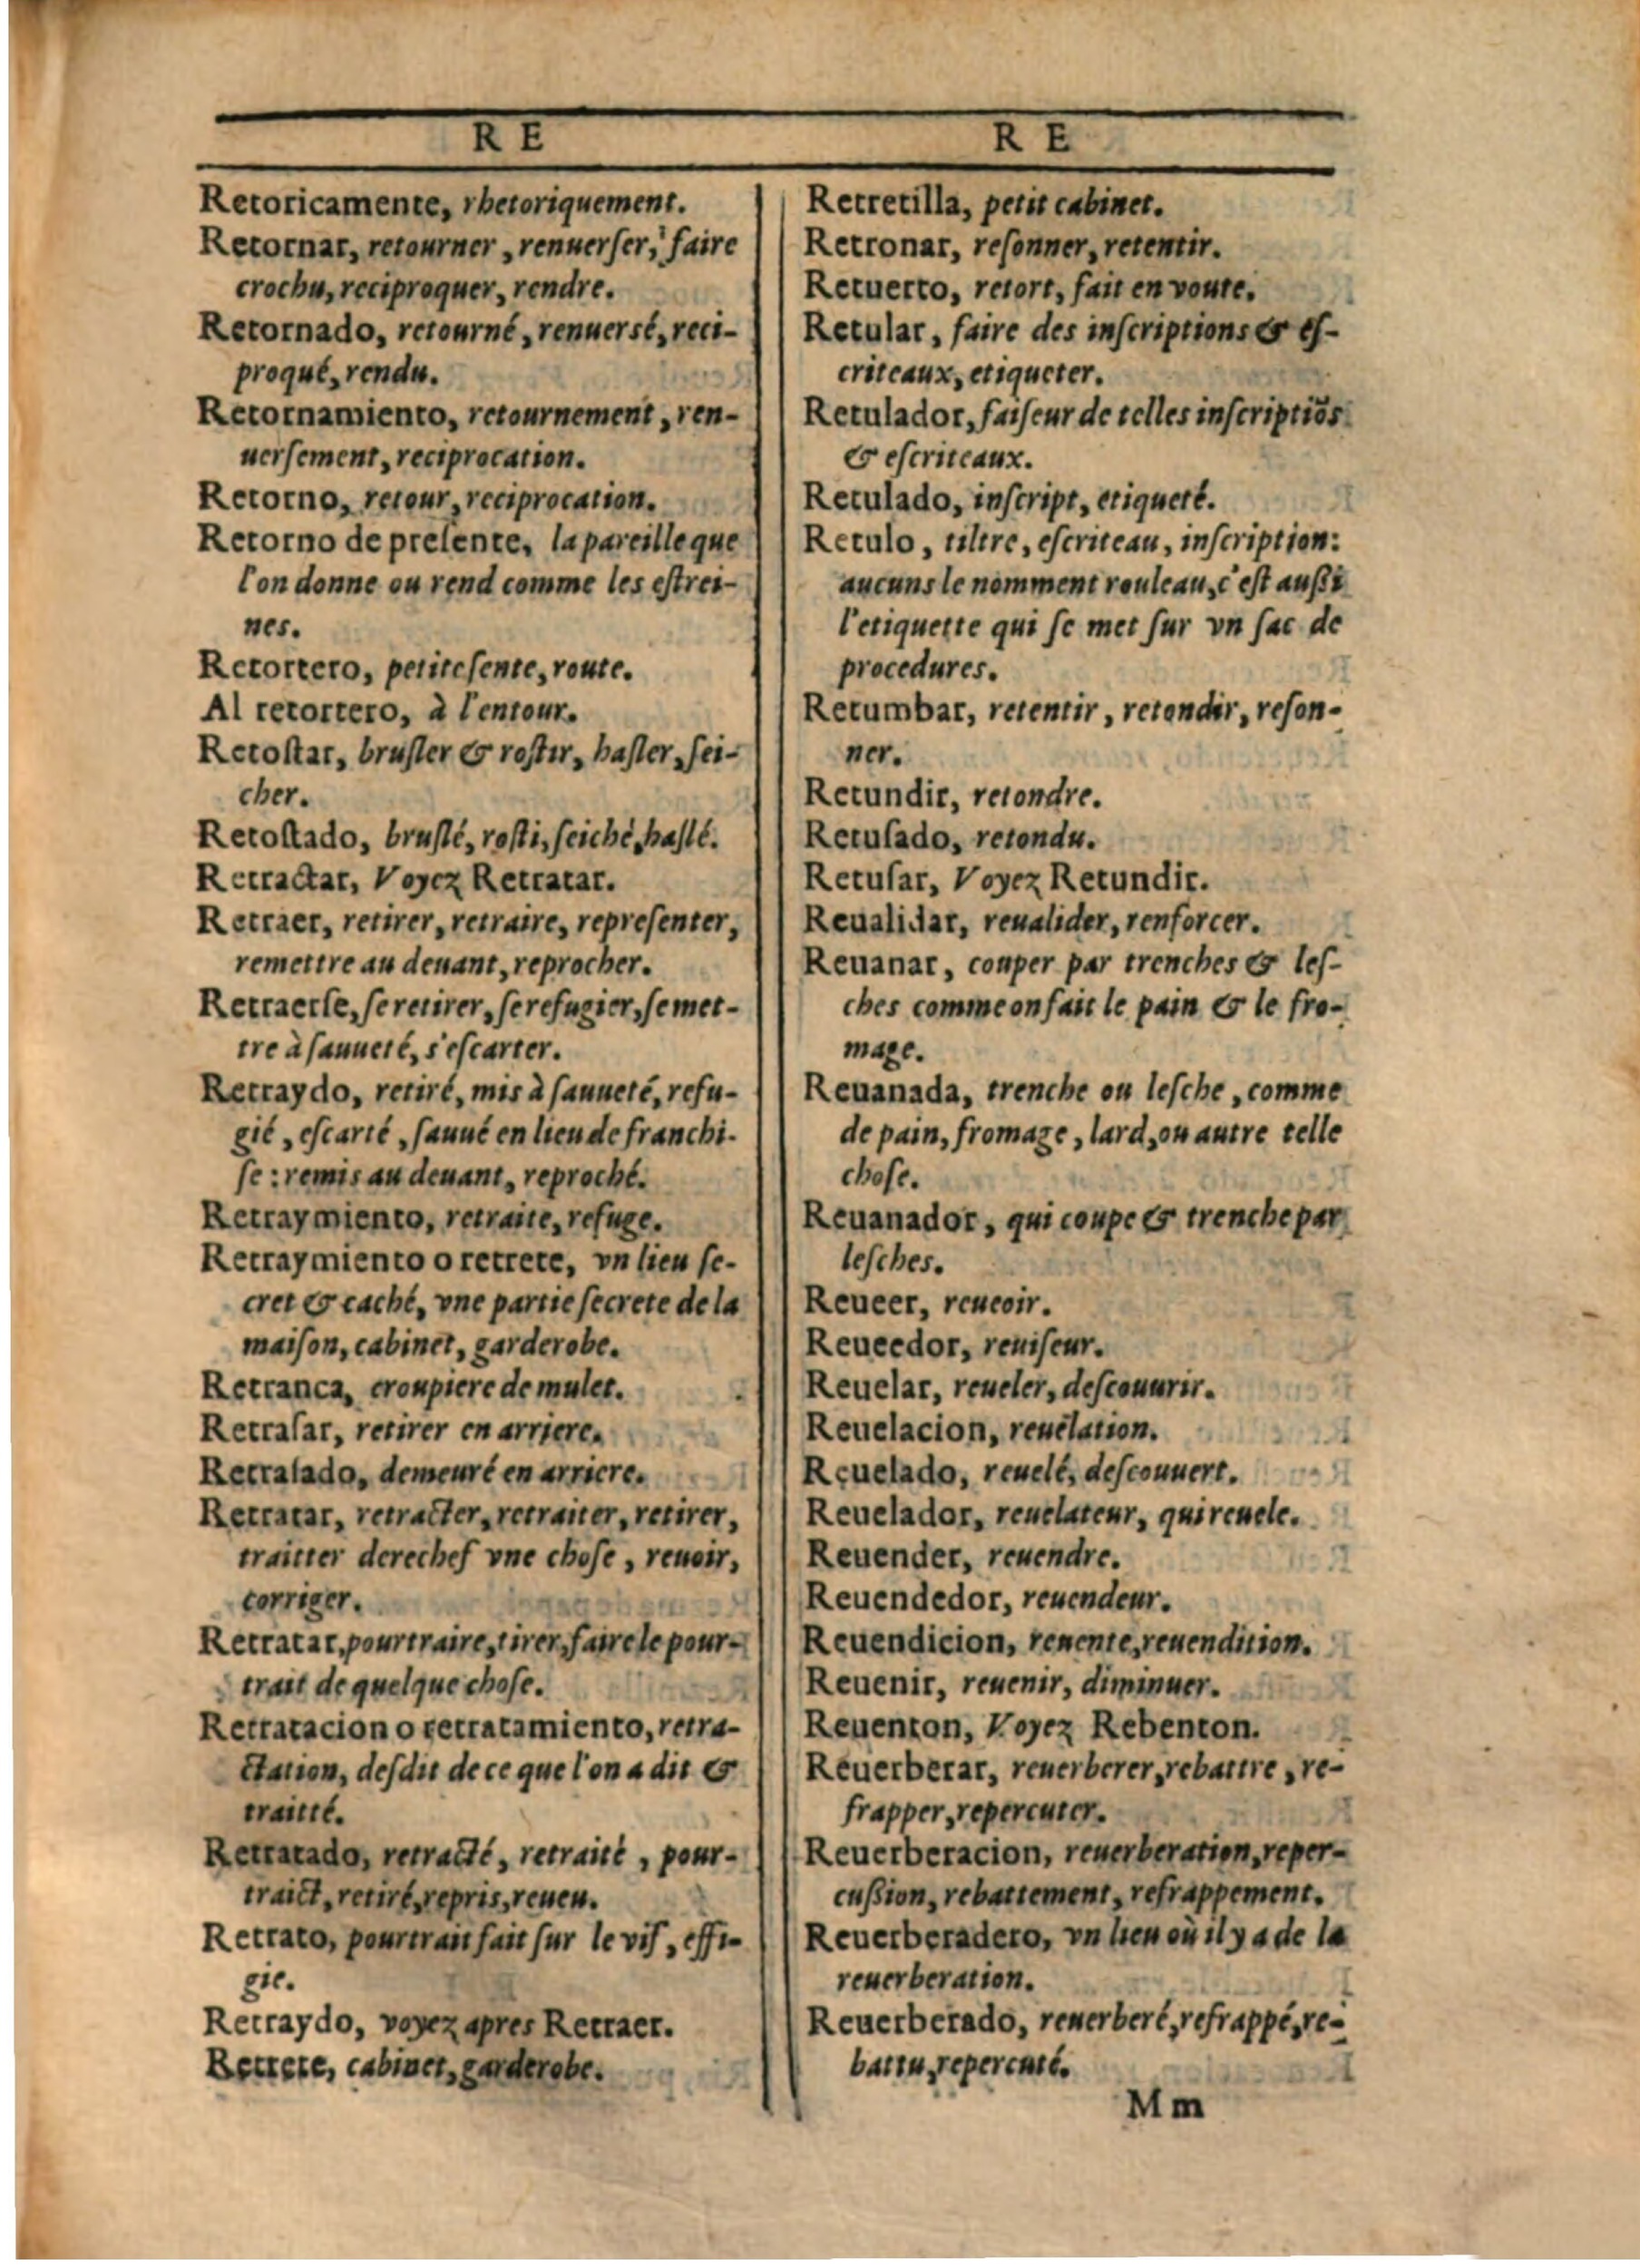 R E
Retoricamente, rhetoriquement.
Retornar, retourner, renuerſer, faire
crochu, reciproquer, rendre.
Retornado, retourné, renuersé, reci-
proqué, rendu.
Retornamiento, retournement, ren-
uerſement, reciprocation.
Retorno, retour, reciprocation.
Retorno de preſente, la pareille que
l'on donne ou rend comme les eſtrei-
nes.
Retortero, petite ſente, route.
Al retortero, à l'entour.
Retoſtar, bruſler & roſtir, haſler, ſei-
cher.
Retoſtado, bruſlé, roſti, ſeiché, haſlé.
Retractar, Voyez Retratar.
Retraer, retirer, retraire, repreſenter,
remettre au deuant, reprocher.
Retraerſe, ſe retirer, ſe refugier, ſe met-
tre à ſauueté, s'eſcarter.
Retraydo, retiré, mis à ſauueté, refu-
gié, eſcarté, ſauué en lieu de franchi-
ſe : remis au deuant, reproché.
Retraymiento, retraite, refuge.
Retraymiento o retrete, vn lieu ſe-
cret & caché, vne partie ſecrete de la
maiſon, cabinet, garderobe.
Retranca, croupiere de mulet.
Retraſar, retirer en arriere.
Retraſado, demeuré en arriere.
Retratar, retracter, retraiter, retirer,
traitter derechef vne choſe, reuoir,
corriger.
Retratar, pourtraire, tirer, faire le pour-
trait de quelque choſe.
Retratacion o retratamiento, retra-
ctation, deſdit de ce que l'on a dit &
traitté.
Retratado, retracté, retraité, pour-
traict, retiré, repris, reueu.
Retrato, pourtrait fait ſur le vif, effi-
gie.
Retraydo, voyez apres Retraer.
Retrete, cabinet, garderobe.
R E
Retretilla, petit cabinet.
Retronar, reſonner, retentir.
Retuerto, retort, fait en voute.
Retular, faire des inſcriptions & eſ-
criteaux, etiqueter.
Retulador, faiſeur de telles inſcriptiõs
& eſcriteaux.
Retulado, inſcript, etiqueté.
Retulo, tiltre, eſcriteau, inſcription:
aucuns le nomment rouleau, c'eſt auſſi
l'etiquette qui ſe met ſur vn ſac de
procedures.
Retumbar, retentir, retondir, reſon-
ner.
Retundir, retondre.
Retuſado, retondu.
Retuſar, Voyez Retundir.
Reualidar, reualider, renforcer.
Reuanar, couper par trenches & leſ-
ches comme on fait le pain & le fro-
mage.
Reuanada, trenche ou leſche, comme
de pain, fromage, lard, ou autre telle
choſe.
Reuanador, qui coupe & trenche par
leſches.
Reueer, reueoir.
Reueedor, reuiſeur.
Reuelar, reueler, deſcouurir.
Reuelacion, reuelation.
Reuelado, reuelé, deſcouuert.
Reuelador, reuelateur, qui reuele.
Reuender, reuendre.
Reuendedor, reuendeur.
Reuendicion, reuente, reuendition.
Reuenir, reuenir, diminuer.
Reuenton, Voyez Rebenton.
Reuerberar, reuerberer, rebattre, re-
frapper, repercuter.
Reuerberacion, reuerberation, reper-
cuſſion, rebattement, refrappement.
Reuerberadero, vn lieu où il y a de la
reuerberation.
Reuerberado, reuerberé, refrappé, re-
battu, repercuté.
Mm